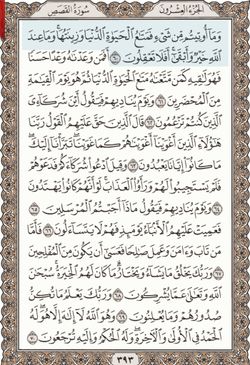 الجزء العشرون سورة القصص
وَمَا أُوتِيتُم مِّن شَيْءٍ فَمَتَٰعُ ٱلْحَيَوٰةِ ٱلدُّنْيَا وَزِينَتُهَا وَمَا عِندَ
ٱللَّهِ خَيْرٌ وَأَبْقَىٰٓ أَفَلَا تَعْقِلُونَ ٦٠ أَفَمَن وَعَدْنَٰهُ وَعْدًا حَسَنًا
فَهُوَ لَٰقِيهِ كَمَن مَّتَّعْنَٰهُ مَتَٰعَ ٱلْحَيَوٰةِ ٱلدُّنْيَا ثُمَّ هُوَ يَوْمَ ٱلْقِيَٰمَةِ
مِنَ ٱلْمُحْضَرِينَ ٦١ وَيَوْمَ يُنَادِيهِمْ فَيَقُولُ أَيْنَ شُرَكَآءِىَ
ٱلَّذِينَ كُنتُمْ تَزْعُمُونَ ٦٢ قَالَ ٱلَّذِينَ حَقَّ عَلَيْهِمُ ٱلْقَوْلُ رَبَّنَا
هَٰٓؤُلَآءِ ٱلَّذِينَ أَغْوَيْنَآ أَغْوَيْنَٰهُمْ كَمَا غَوَيْنَا تَبَرَّأْنَآ إِلَيْكَ
مَا كَانُوٓا۟ إِيَّانَا يَعْبُدُونَ ٦٣ وَقِيلَ ٱدْعُوا۟ شُرَكَآءَكُمْ فَدَعَوْهُمْ
فَلَمْ يَسْتَجِيبُوا۟ لَهُمْ وَرَأَوُا۟ ٱلْعَذَابَ لَوْ أَنَّهُمْ كَانُوا۟ يَهْتَدُونَ
٦٤ وَيَوْمَ يُنَادِيهِمْ فَيَقُولُ مَاذَآ أَجَبْتُمُ ٱلْمُرْسَلِينَ ٦٥
فَعَمِيَتْ عَلَيْهِمُ ٱلْأَنۢبَآءُ يَوْمَئِذٍ فَهُمْ لَا يَتَسَآءَلُونَ ٦٦ فَأَمَّا
مَن تَابَ وَءَامَنَ وَعَمِلَ صَٰلِحًا فَعَسَىٰٓ أَن يَكُونَ مِنَ ٱلْمُفْلِحِينَ
٦٧ وَرَبُّكَ يَخْلُقُ مَا يَشَآءُ وَيَخْتَارُ مَا كَانَ لَهُمُ ٱلْخِيَرَةُ سُبْحَٰنَ
ٱللَّهِ وَتَعَٰلَىٰ عَمَّا يُشْرِكُونَ ٦٨ وَرَبُّكَ يَعْلَمُ مَا تُكِنُّ
صُدُورُهُمْ وَمَا يُعْلِنُونَ ٦٩ وَهُوَ ٱللَّهُ لَآ إِلَٰهَ إِلَّا هُوَ لَهُ
ٱلْحَمْدُ فِى ٱلْأُولَىٰ وَٱلْءَاخِرَةِ وَلَهُ ٱلْحُكْمُ وَإِلَيْهِ تُرْجَعُونَ ٧٠
٣٩٣